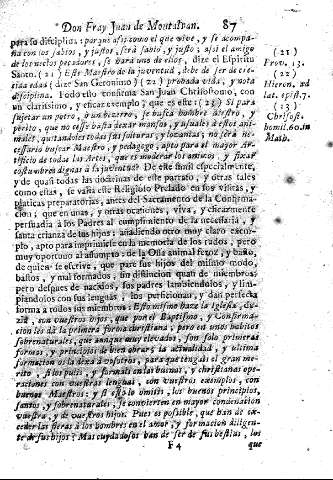 Don Fray Juan de Montalvan. 87
para su disciplina: porque assi como el que vive, y se acompa-
ña con los sabios, y justos, serà sabio, y justo; assi el amigo
de los necios pecadores, se harà uno de ellos, dize el Espiritu
Santo. (21) Este Maestro de la juventud, debe de ser de cre-
cida edad (dize San Geronimo) (22) probada vida, y nota
disciplina. Todo esto confirma San Juan Chrisostomo, con
un clarissimo, y eficaz exemplo; que es este: (23) Si para
sujetar un potro, ò un bezerro, se busca hombre diestro, y
perito, que no esse basta dezar mansos, y usuales à estos ani-
males, quitandoles todas sus solturas, y lozanias; no serà ne-
cessario buscar Maestro, y pedagogo, apto para el mayor Ar-
tificio de todas las Artes, que es moderar los animos, y fixar
costumbres dignas à la juventud? De este simil especialmente,
y de quasi todas las doctrinas de este parrafo, y otras tales
como estas, se valia este Religioso Prelado en sus visitas, y
platicas preparatorias, antes del Sacramento de la Confirma-
cion; que en unas, y otras ocasiones, viva, y eficazmente
persuadia à los Padres al cumplimiento de la necessaria, y
santa crianza de los hijos: añadiendo otro muy claro exem-
plo, apto para imprimirse en la memoria de los rudos, pero
muy oportuno al assumpto: de la Ossa animal feroz, y baño,
de quien se escrive, que pare sus hijos del mismo modo,
bastos, y mal formados, sin distincion quasi de miembros
pero despues de nacidos, sus padres lambiendolos, y lim-
piandolos con sus lenguas, los perficionan, y dan perfecta
forma à todos sus miembros: Esto mismo haze la Iglesia,
sus vuestros hijos, que por el Baptismo, y Confirma-
cion les dà la primera forma christiana; pero en unos habitos
sobrenaturales, que aunque muy elevados, son solo primeras
formas, y principios de bien obrar; la actualidad, y ultima
formacion os la dexa à vosotros, para que tengais el gran me-
rito, si los puliis, y formais en las buenas, y christianas ope-
raciones con vuestras lenguas, con vuestros exemplos, con
buenos Maestros; y si esto lo omitis, los buenos principios,
santos, y sobrenaturales, se convierten en mayor condenacion
vuestra, y de vuestros hijos. Pues es possible, que han de ex-
ceder las fieras à los hombres en el amor, y formacion diligen-
te de sus hijos? Mas cuydadosos han de ser de sus bestias, los
F 4 que
(21)
Prov. 13.
(22)
Hieron. ad
lat. epist. 7.
(23)
Chrisost.
homil. 60. in
Math.